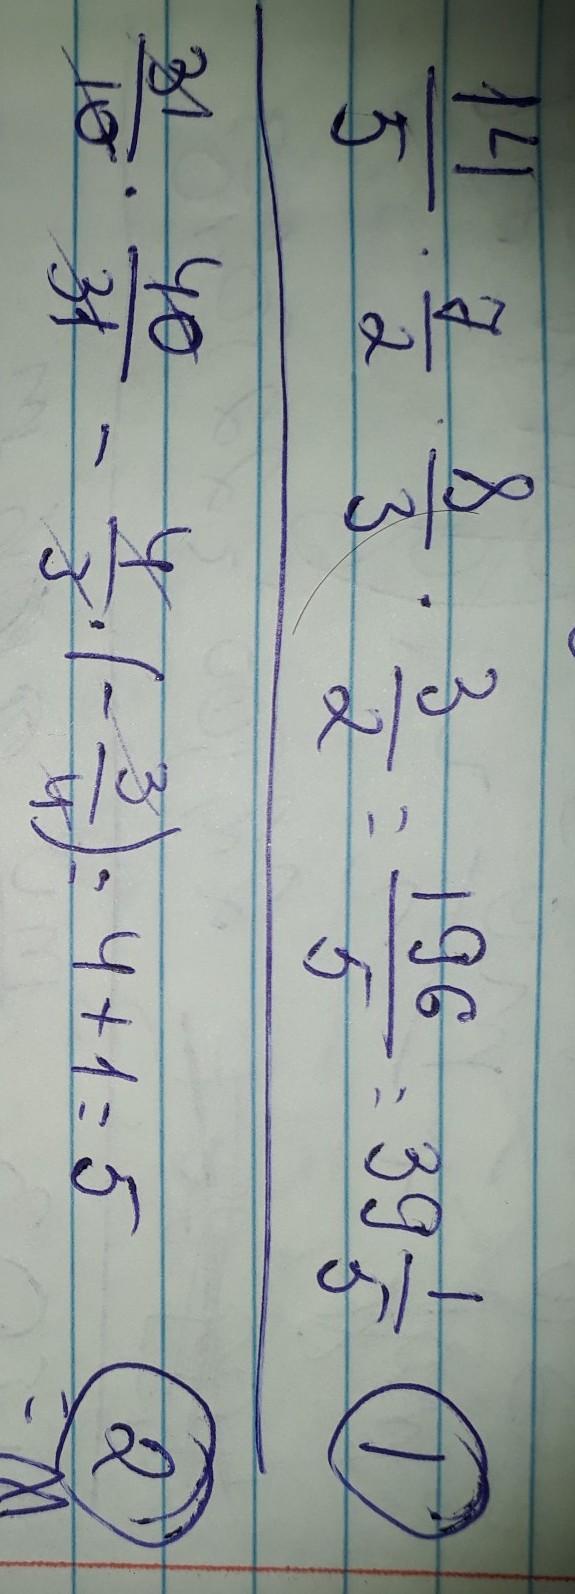 14/5 · 7/2 · 8/3 · 3/2 = 196/5 = 39 1/5 ①
31/10 · 40/31 - 4/3 · (-3/4) = 4+1=5 ②